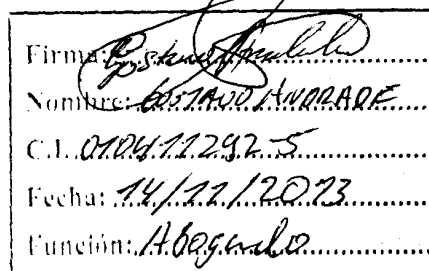 Firma: Gustavo Andrade
Nombre: GUSTAVO ANDRADE
C.I. 010411292-5
Fecha: 14/11/2013
Función: Abogado